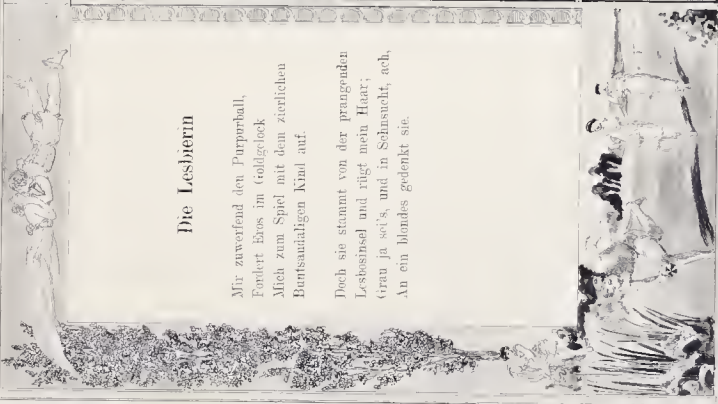 Die Lesbierin
Mir zuwerfend den Purpurball,
Fordert Eros im Goldgelock
Mich zum Spiel mit dem zierlichen
Buntsandaligen Kind auf.
Doch sie stammt von der prangenden
Lesbosinsel und rügt mein Haar;
Grau ja sei's, und in Sehnsucht, ach,
An ein blondes gedenkt sie.